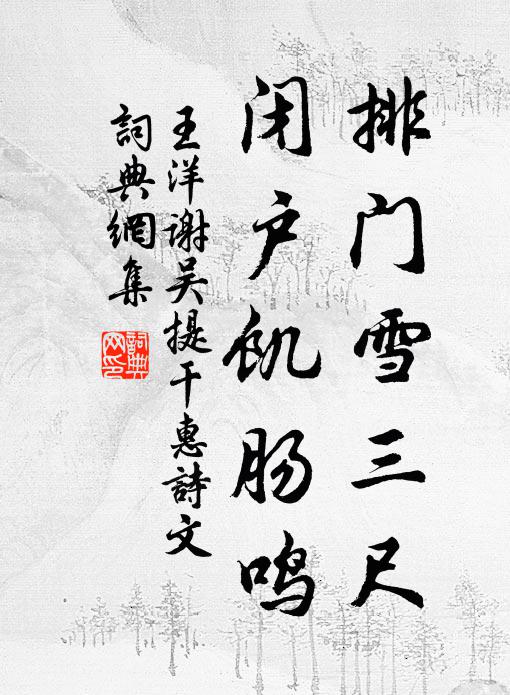 排门雪三尺
闭户饥肠鸣
王洋谢吴提干惠詩文
詞典網集
詞典网印